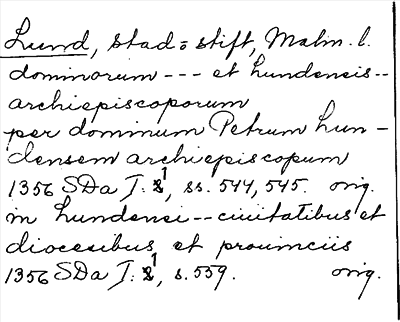 Lund, stad o stift, Malm. l.
dominorum --- et Lundensis --
archiepiscoporum
per dominum Petrum Lun-
densem archiepiscopum
1356 SDa I: 1, ss. 544, 545. orig.
in Lundensi -- ciuitatibus et
diocesibus et prouinciis
1356 SDa I: 1, s. 559. orig.